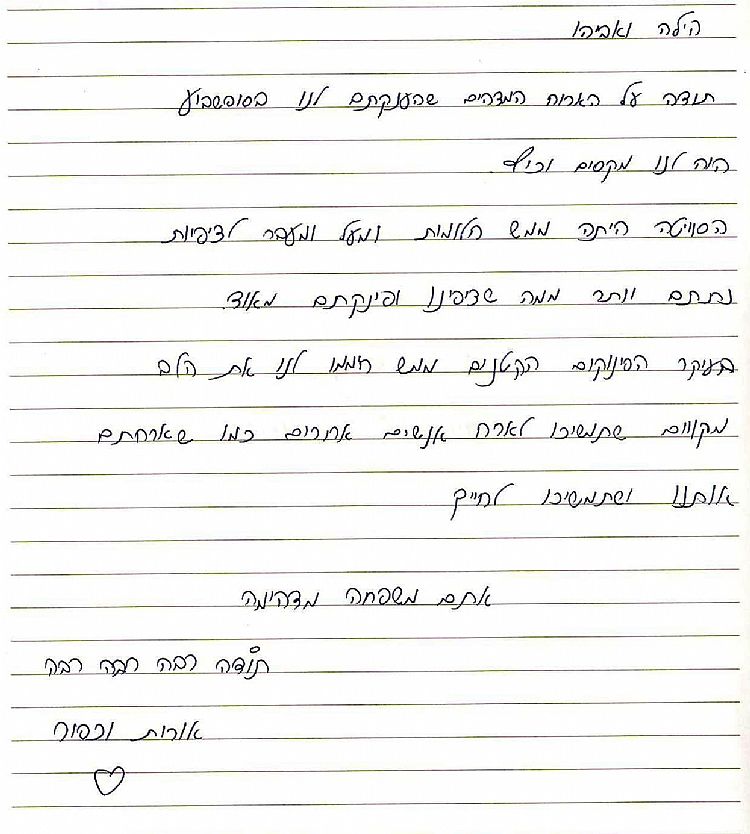 הילה ואביהו
תודה על האירוח המדהים שהענקתם לנו בסופשבוע
היה לנו מקסים וכיף.
הסוויטה היתה ממש חלומית ומעל ומעבר לציפיות
נתתם יותר ממה שציפינו ופינקתם מאוד.
בעיקר הפינוקים הקטנים ממש חיממו לנו את הלב
מקווים שתמשיכו לארח אנשים אחרים כמו שארחתם
אותנו ושתמשיכו לחייך
אתם משפחה מדהימה
תודה רבה רבה רבה
אורית וכפיר